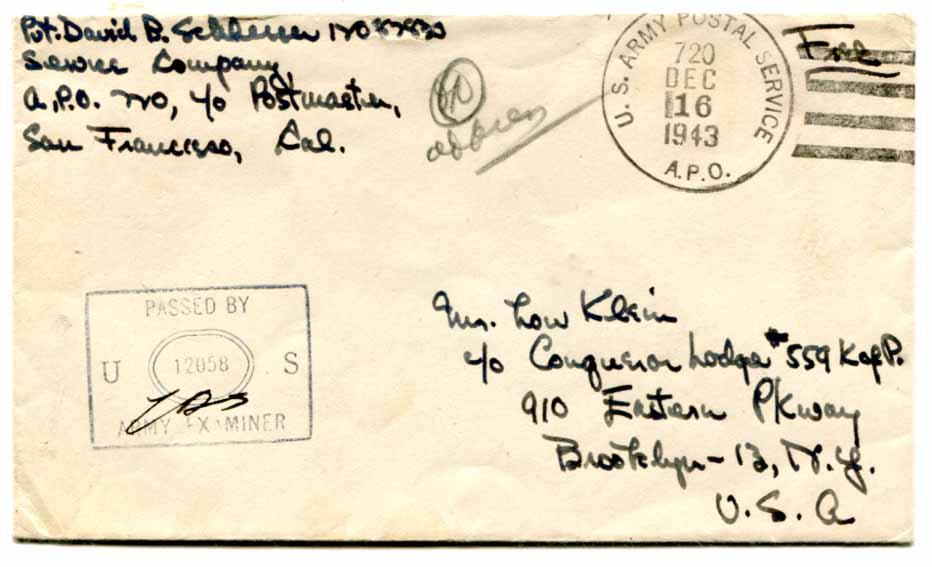 Pvt. David B.
Service Company
A.P.O. 720, c/o Postmaster,
San Francisco, Cal.
U. S. ARMY POSTAL SERVICE
720
DEC
16
1943
A.P.O.
Free
PASSED BY
U 12058 S
ARMY EXAMINER
Mr. Lou Klein
c/o Conqueror Lodge #559 K of P.
910 Eastern Pkway
Brooklyn - 13, N.Y.
U. S. A